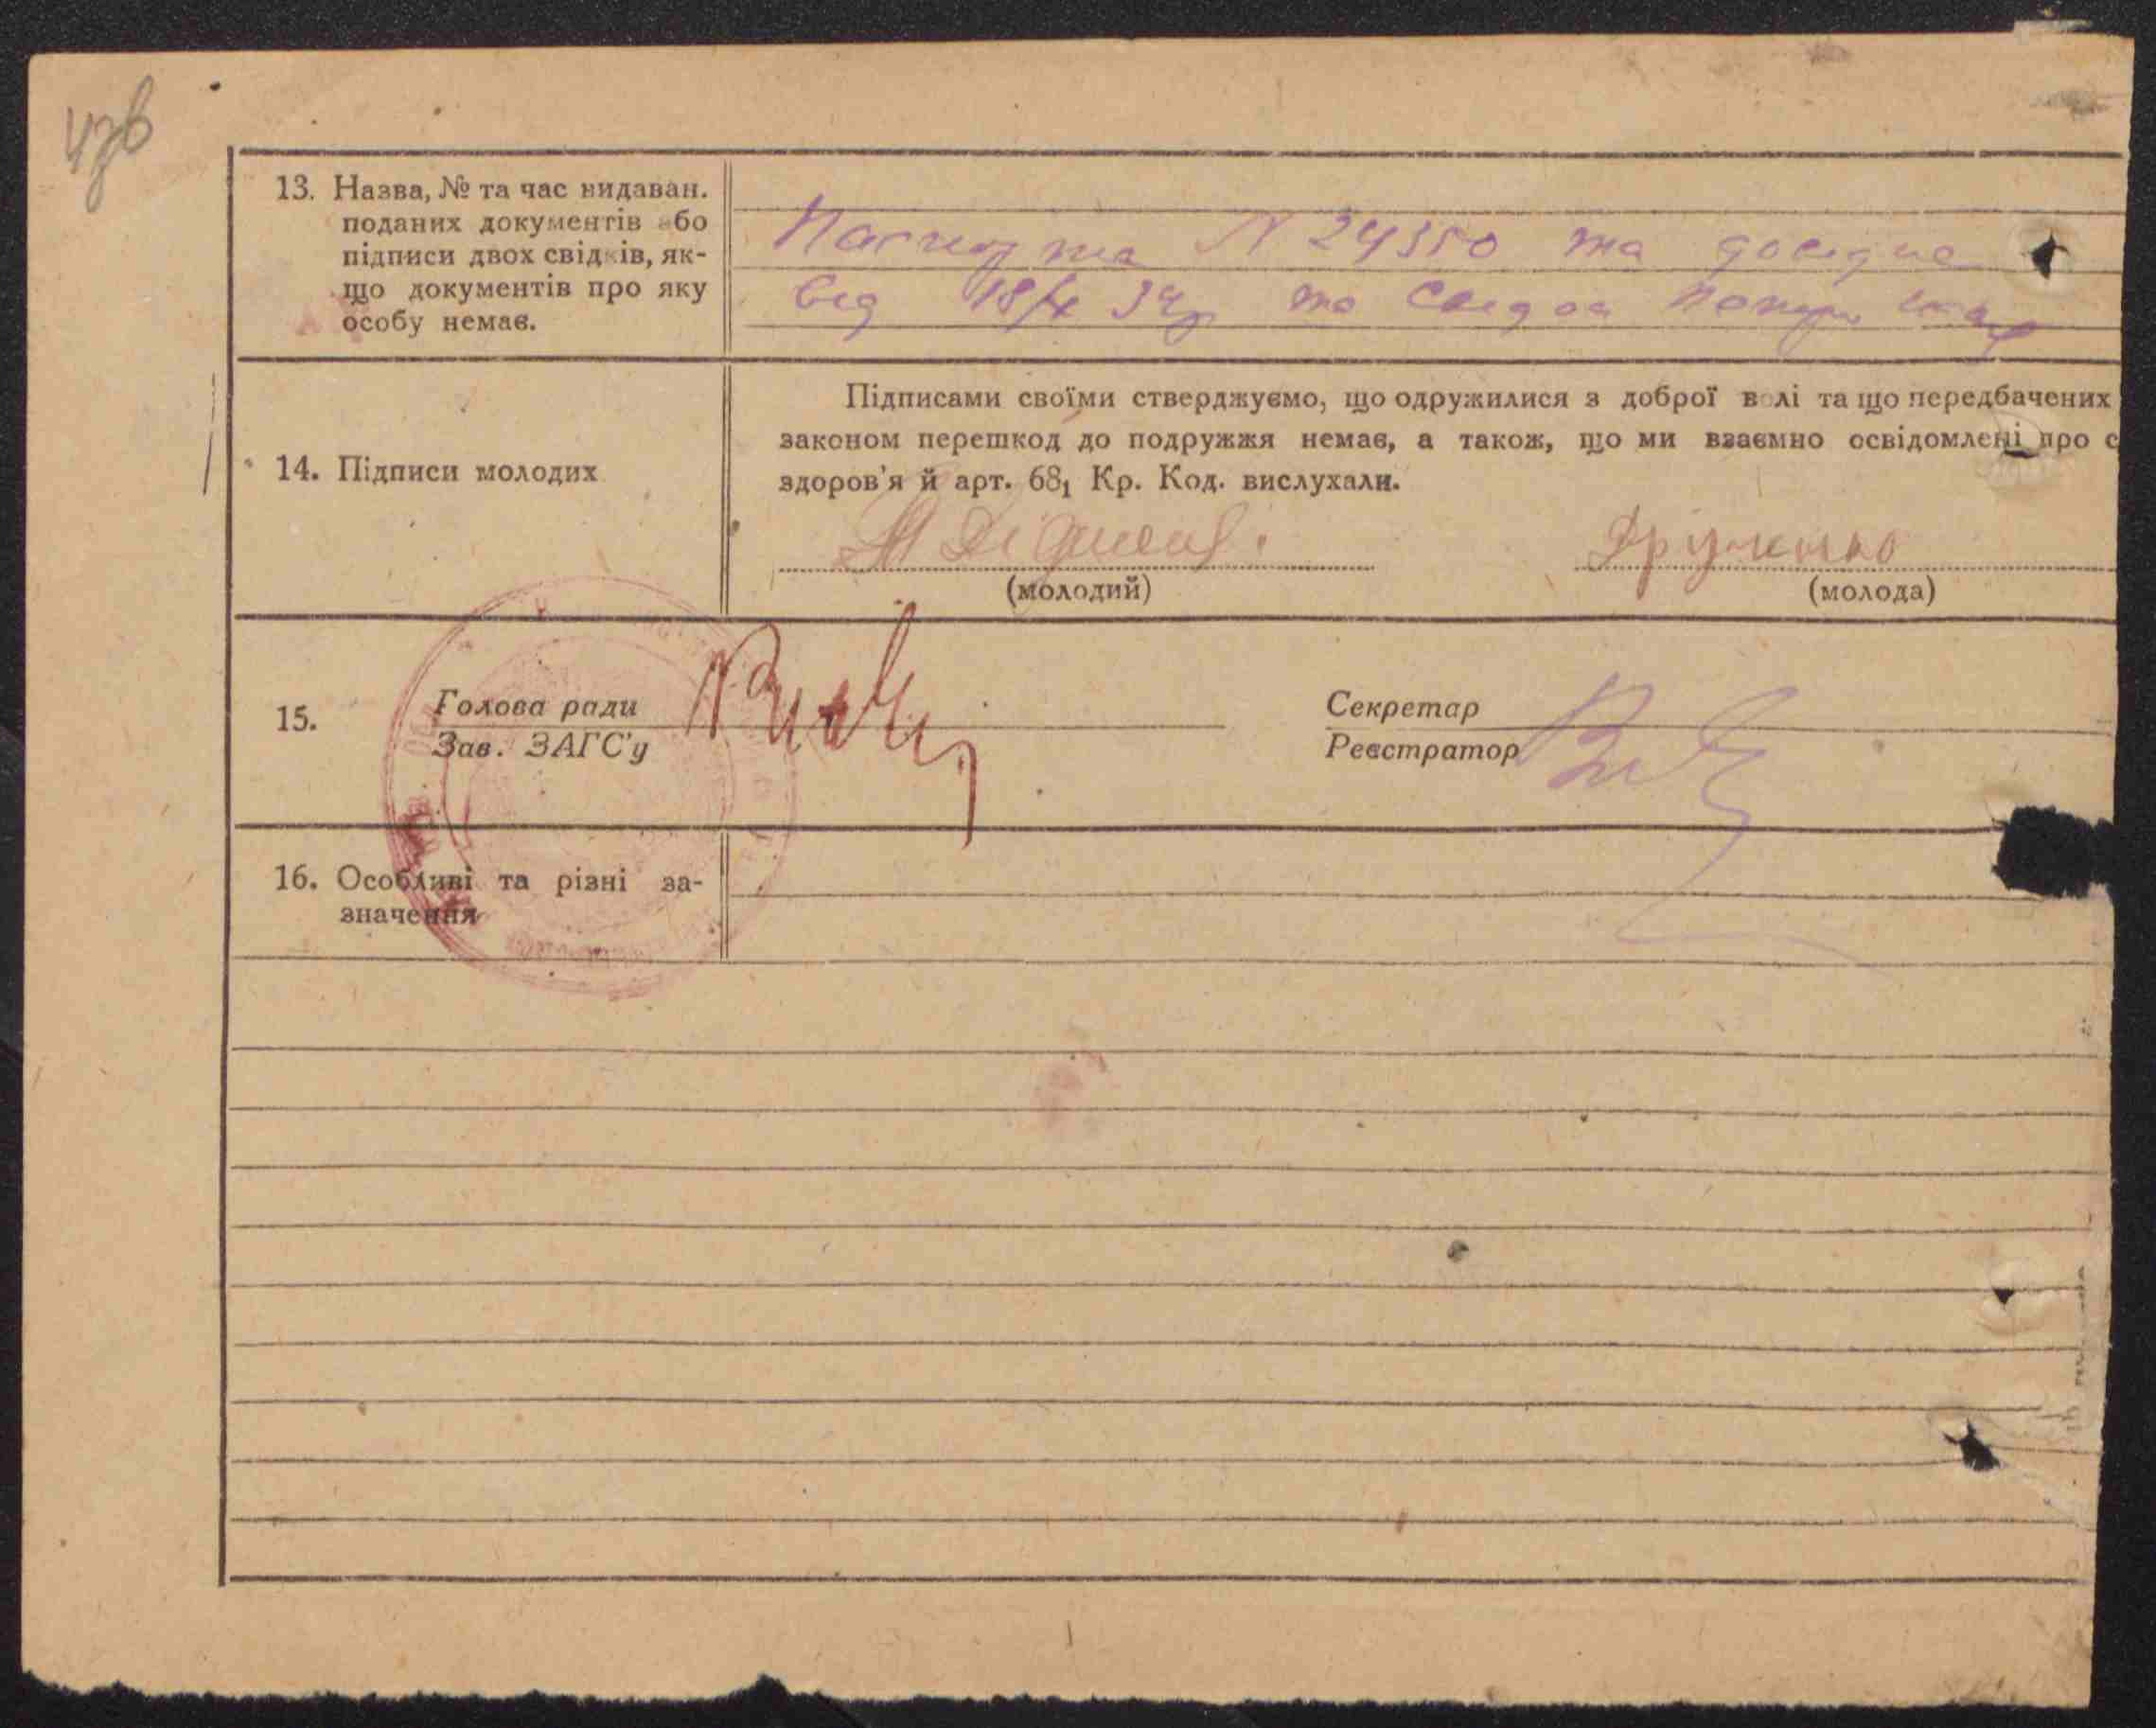 13. Назва, № та час видаван.
поданих документів або
підписи двох свідків, як-
що документів про яку
особу немає.
Паспорта N 24350 та довідка
від 18/ 34р та
14. Підписи молодих
Підписами своїми стверджуємо, що одружилися з доброї волі та що передбачених
законом перешкод до подружжя немає, а також, що ми взаємно освідомлені про с
здоров'я й арт. 68₁ Кр. Код. вислухали.
(молодий)
(молода)
15.
Голова ради
Зав. ЗАГС'у
Секретар
Реєстратор
16. Особливі та різні за-
значення